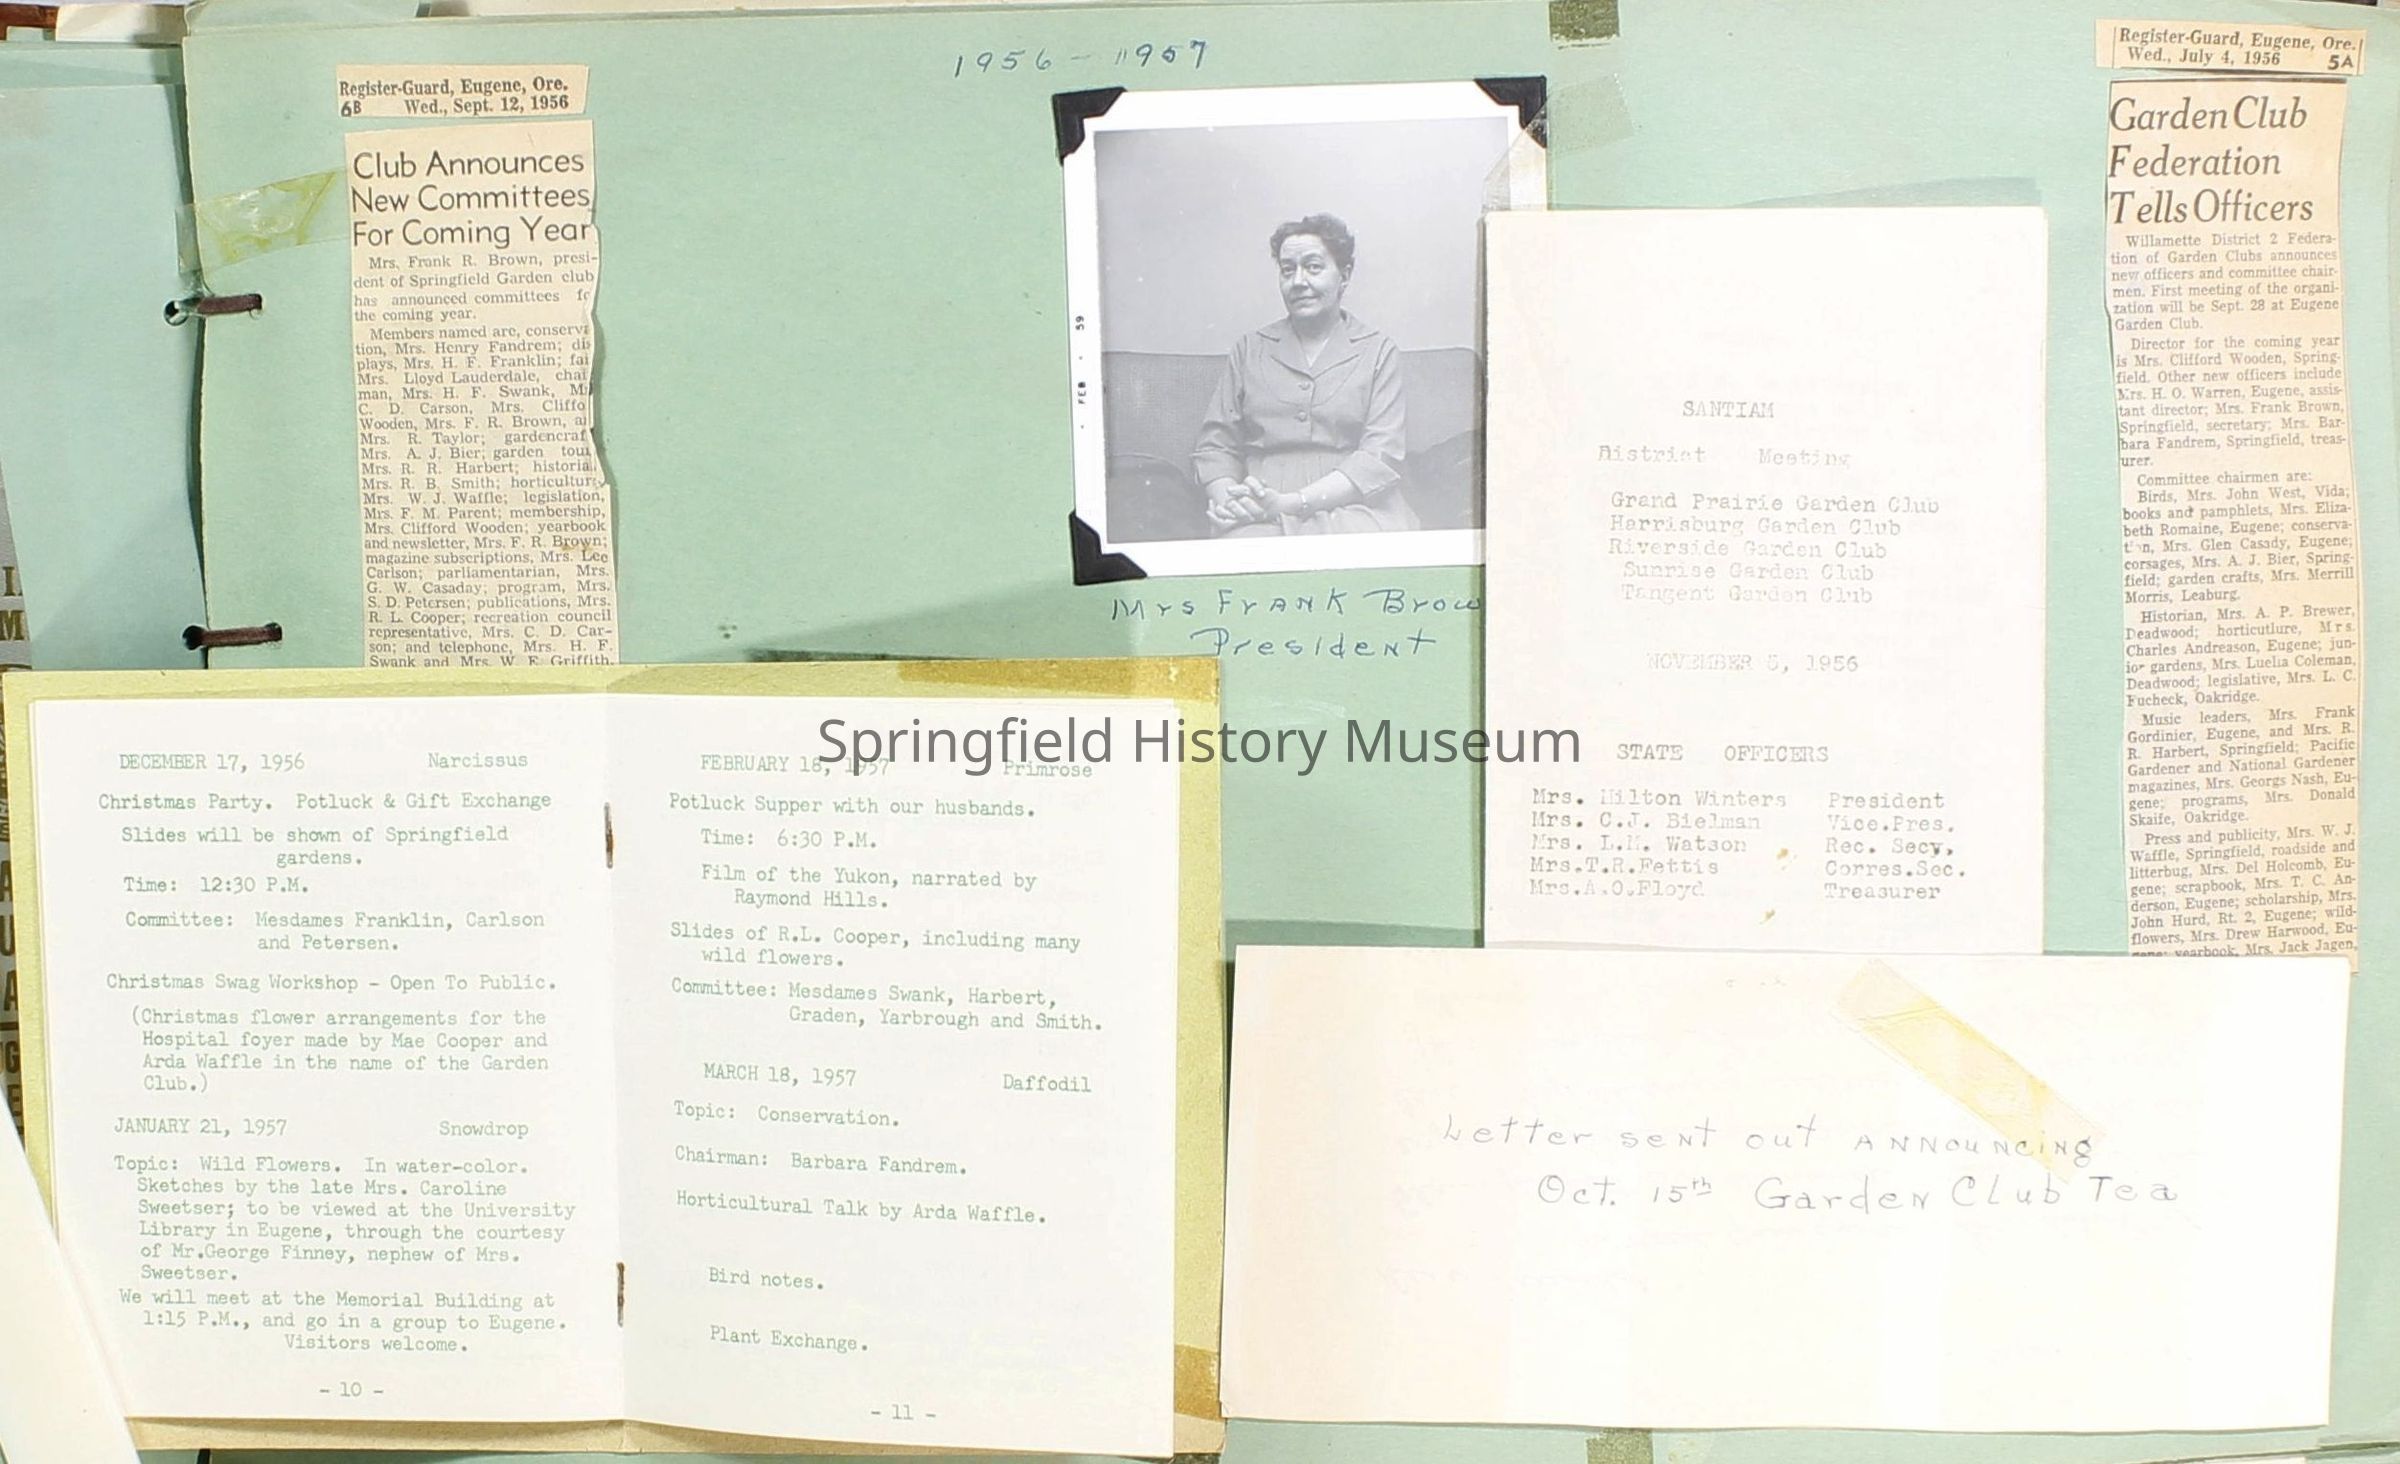 1956 - 1957
Register-Guard, Eugene, Ore.
6B Wed., Sept. 12, 1956
Club Announces
New Committees
For Coming Year
Mrs. Frank R. Brown, presi-
dent of Springfield Garden club
has announced committees fo
the coming year.
Members named are, conserva
tion, Mrs. Henry Fandrem; dis
plays, Mrs. H. F. Franklin; fai
Mrs. Lloyd Lauderdale, chai
man, Mrs. H. F. Swank, M
C. D. Carson, Mrs. Cliffo
Wooden, Mrs. F. R. Brown, a
Mrs. R. Taylor; gardencraf
Mrs. A. J. Bier; garden tou
Mrs. R. R. Harbert; historia
Mrs. R. B. Smith; horticultur
Mrs. W. J. Waffle; legislation,
Mrs. F. M. Parent; membership,
Mrs. Clifford Wooden; yearbook
and newsletter, Mrs. F. R. Brown;
magazine subscriptions, Mrs. Lee
Carlson; parliamentarian, Mrs.
G. W. Casaday; program, Mrs.
S. D. Petersen; publications, Mrs.
R. L. Cooper; recreation council
representative, Mrs. C. D. Car-
son; and telephone, Mrs. H. F.
Swank and Mrs. W. F. Griffith.
FEB · 59
Mrs Frank Brow
President
SANTIAM
District Meeting
Grand Prairie Garden Club
Harrisburg Garden Club
Riverside Garden Club
Sunrise Garden Club
Tangent Garden Club
NOVEMBER 5, 1956
STATE OFFICERS
Mrs. Hilton Winters President
Mrs. C.J. Bielman Vice.Pres.
Mrs. L.M. Watson Rec. Secy,
Mrs.T.R.Fettis Corres.Sec.
Mrs.A.O.Floyd Treasurer
Register-Guard, Eugene, Ore.
Wed., July 4, 1956 5A
Garden Club
Federation
Tells Officers
Willamette District 2 Federa-
tion of Garden Clubs announces
new officers and committee chair-
men. First meeting of the organi-
zation will be Sept. 28 at Eugene
Garden Club.
Director for the coming year
is Mrs. Clifford Wooden, Spring-
field. Other new officers include
Mrs. H. O. Warren, Eugene, assis-
tant director; Mrs. Frank Brown,
Springfield, secretary; Mrs. Bar-
bara Fandrem, Springfield, treas-
urer.
Committee chairmen are:
Birds, Mrs. John West, Vida;
books and pamphlets, Mrs. Eliza-
beth Romaine, Eugene; conserva-
tion, Mrs. Glen Casady, Eugene;
corsages, Mrs. A. J. Bier, Spring-
field; garden crafts, Mrs. Merrill
Morris, Leaburg.
Historian, Mrs. A. P. Brewer,
Deadwood; horticutlure, Mrs.
Charles Andreason, Eugene; jun-
ior gardens, Mrs. Luella Coleman,
Deadwood; legislative, Mrs. L. C.
Fucheck, Oakridge.
Music leaders, Mrs. Frank
Gordinier, Eugene, and Mrs. R.
R. Harbert, Springfield; Pacific
Gardener and National Gardener
magazines, Mrs. Georgs Nash, Eu-
gene; programs, Mrs. Donald
Skaife, Oakridge.
Press and publicity, Mrs. W. J.
Waffle, Springfield, roadside and
litterbug, Mrs. Del Holcomb, Eu-
gene; scrapbook, Mrs. T. C. An-
derson, Eugene; scholarship, Mrs.
John Hurd, Rt. 2, Eugene; wild-
flowers, Mrs. Drew Harwood, Eu-
gene; yearbook, Mrs. Jack Jagen,
Springfield History Museum
DECEMBER 17, 1956 Narcissus
Christmas Party. Potluck & Gift Exchange
Slides will be shown of Springfield
gardens.
Time: 12:30 P.M.
Committee: Mesdames Franklin, Carlson
and Petersen.
Christmas Swag Workshop - Open To Public.
(Christmas flower arrangements for the
Hospital foyer made by Mae Cooper and
Arda Waffle in the name of the Garden
Club.)
JANUARY 21, 1957 Snowdrop
Topic: Wild Flowers. In water-color.
Sketches by the late Mrs. Caroline
Sweetser; to be viewed at the University
Library in Eugene, through the courtesy
of Mr.George Finney, nephew of Mrs.
Sweetser.
We will meet at the Memorial Building at
1:15 P.M., and go in a group to Eugene.
Visitors welcome.
- 10 -
FEBRUARY 18, 1957 Primrose
Potluck Supper with our husbands.
Time: 6:30 P.M.
Film of the Yukon, narrated by
Raymond Hills.
Slides of R.L. Cooper, including many
wild flowers.
Committee: Mesdames Swank, Harbert,
Graden, Yarbrough and Smith.
MARCH 18, 1957 Daffodil
Topic: Conservation.
Chairman: Barbara Fandrem.
Horticultural Talk by Arda Waffle.
Bird notes.
Plant Exchange.
- 11 -
Letter sent out announcing
Oct. 15th Garden Club Tea